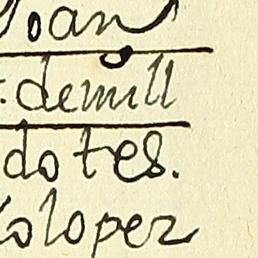 Joan
:demill
dotes.
oloper